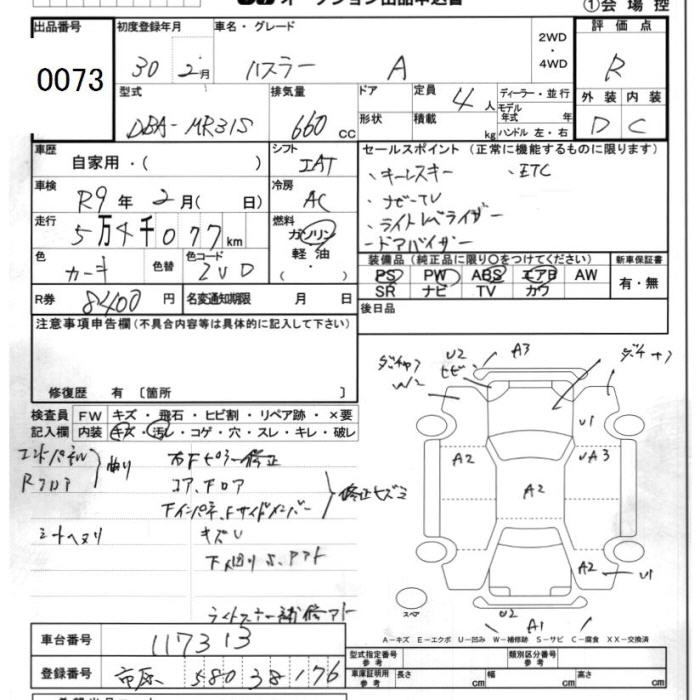 オークション出品申込書
①会場控
出品番号
0073
初度登録年月
30 年 2月
車名・グレード
ハスラー A
2WD
・
4WD
評価点
R
外装 内装
D C
型式
DBA-MR31S
排気量
660 cc
ドア
形状
定員 4人
積載 kg
ディーラー・並行
モデル
年式 年
ハンドル 左・右
車歴
自家用・( )
シフト
IAT
車検
R9年2月( 日)
冷房
AC
走行
5万4千077km
燃料
ガソリン
軽油
( ・ )
色
カーキ
色替
色コード
ZVD
R券
8400円
名変通知期限 月 日
セールスポイント (正常に機能するものに限ります)
・キーレスキー ・ETC
・ナビーTV
・ライトレベライザー
・ドアバイザー
装備品(純正品に限り○をつけてください)
PS PW ABS エアB AW
SR ナビ TV カワ
新車保証書
有・無
後日品
注意事項申告欄(不具合内容等は具体的に記入して下さい)
修復歴 有 〔箇所 〕
検査員
記入欄
FW キズ・飛石・ヒビ割・リペア跡・×要
内装 キズ・汚レ・コゲ・穴・スレ・キレ・破レ
エンドパネル
Rフロア
曲り
右Fピラー修正
コア、Fロア
Fインパネ、Fサイドメンバー
修正ヒズミ
シートヘタリ
キズU
下廻りS、アト
ライトステー補修アト
ダイチャフ
W2
U2
ヒビ
A3
U1
UA3
A2
A2
A2
U1
U2
A1
スペア
A-キズ E-エクボ U-凹み W-補修跡 S-サビ C-腐食 XX-交換済
車台番号
117313
登録番号
市原 580 38176
型式指定番号
参考
類別区分番号
参考
車庫証明用
参考
長さ cm
幅 cm
高さ cm